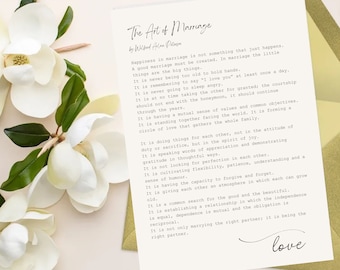 The Art of Marriage
by Wilferd Arlan Peterson
Happiness in marriage is not something that just happens.
A good marriage must be created. In marriage the little
things are the big things.
It is never being too old to hold hands.
It is remembering to say "I love you" at least once a day.
It is never going to sleep angry.
It is at no time taking the other for granted; the courtship
should not end with the honeymoon, it should continue
through the years.
It is having a mutual sense of values and common objectives.
It is standing together facing the world. It is forming a
circle of love that gathers the whole family.
It is doing things for each other, not in the attitude of
duty or sacrifice, but in the spirit of joy.
It is speaking words of appreciation and demonstrating
gratitude in thoughtful ways.
It is not looking for perfection in each other.
It is cultivating flexibility, patience, understanding and a
sense of humour.
It is having the capacity to forgive and forget.
It is giving each other an atmosphere in which each can grow
old.
It is a common search for the good and the beautiful.
It is establishing a relationship in which the independence
is equal, dependence is mutual and the obligation is
reciprocal.
It is not only marrying the right partner; it is being the
right partner.
love